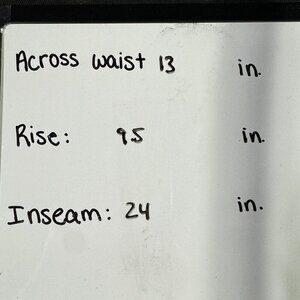 Across waist 13 in.
Rise: 95 in.
Inseam: 24 in.